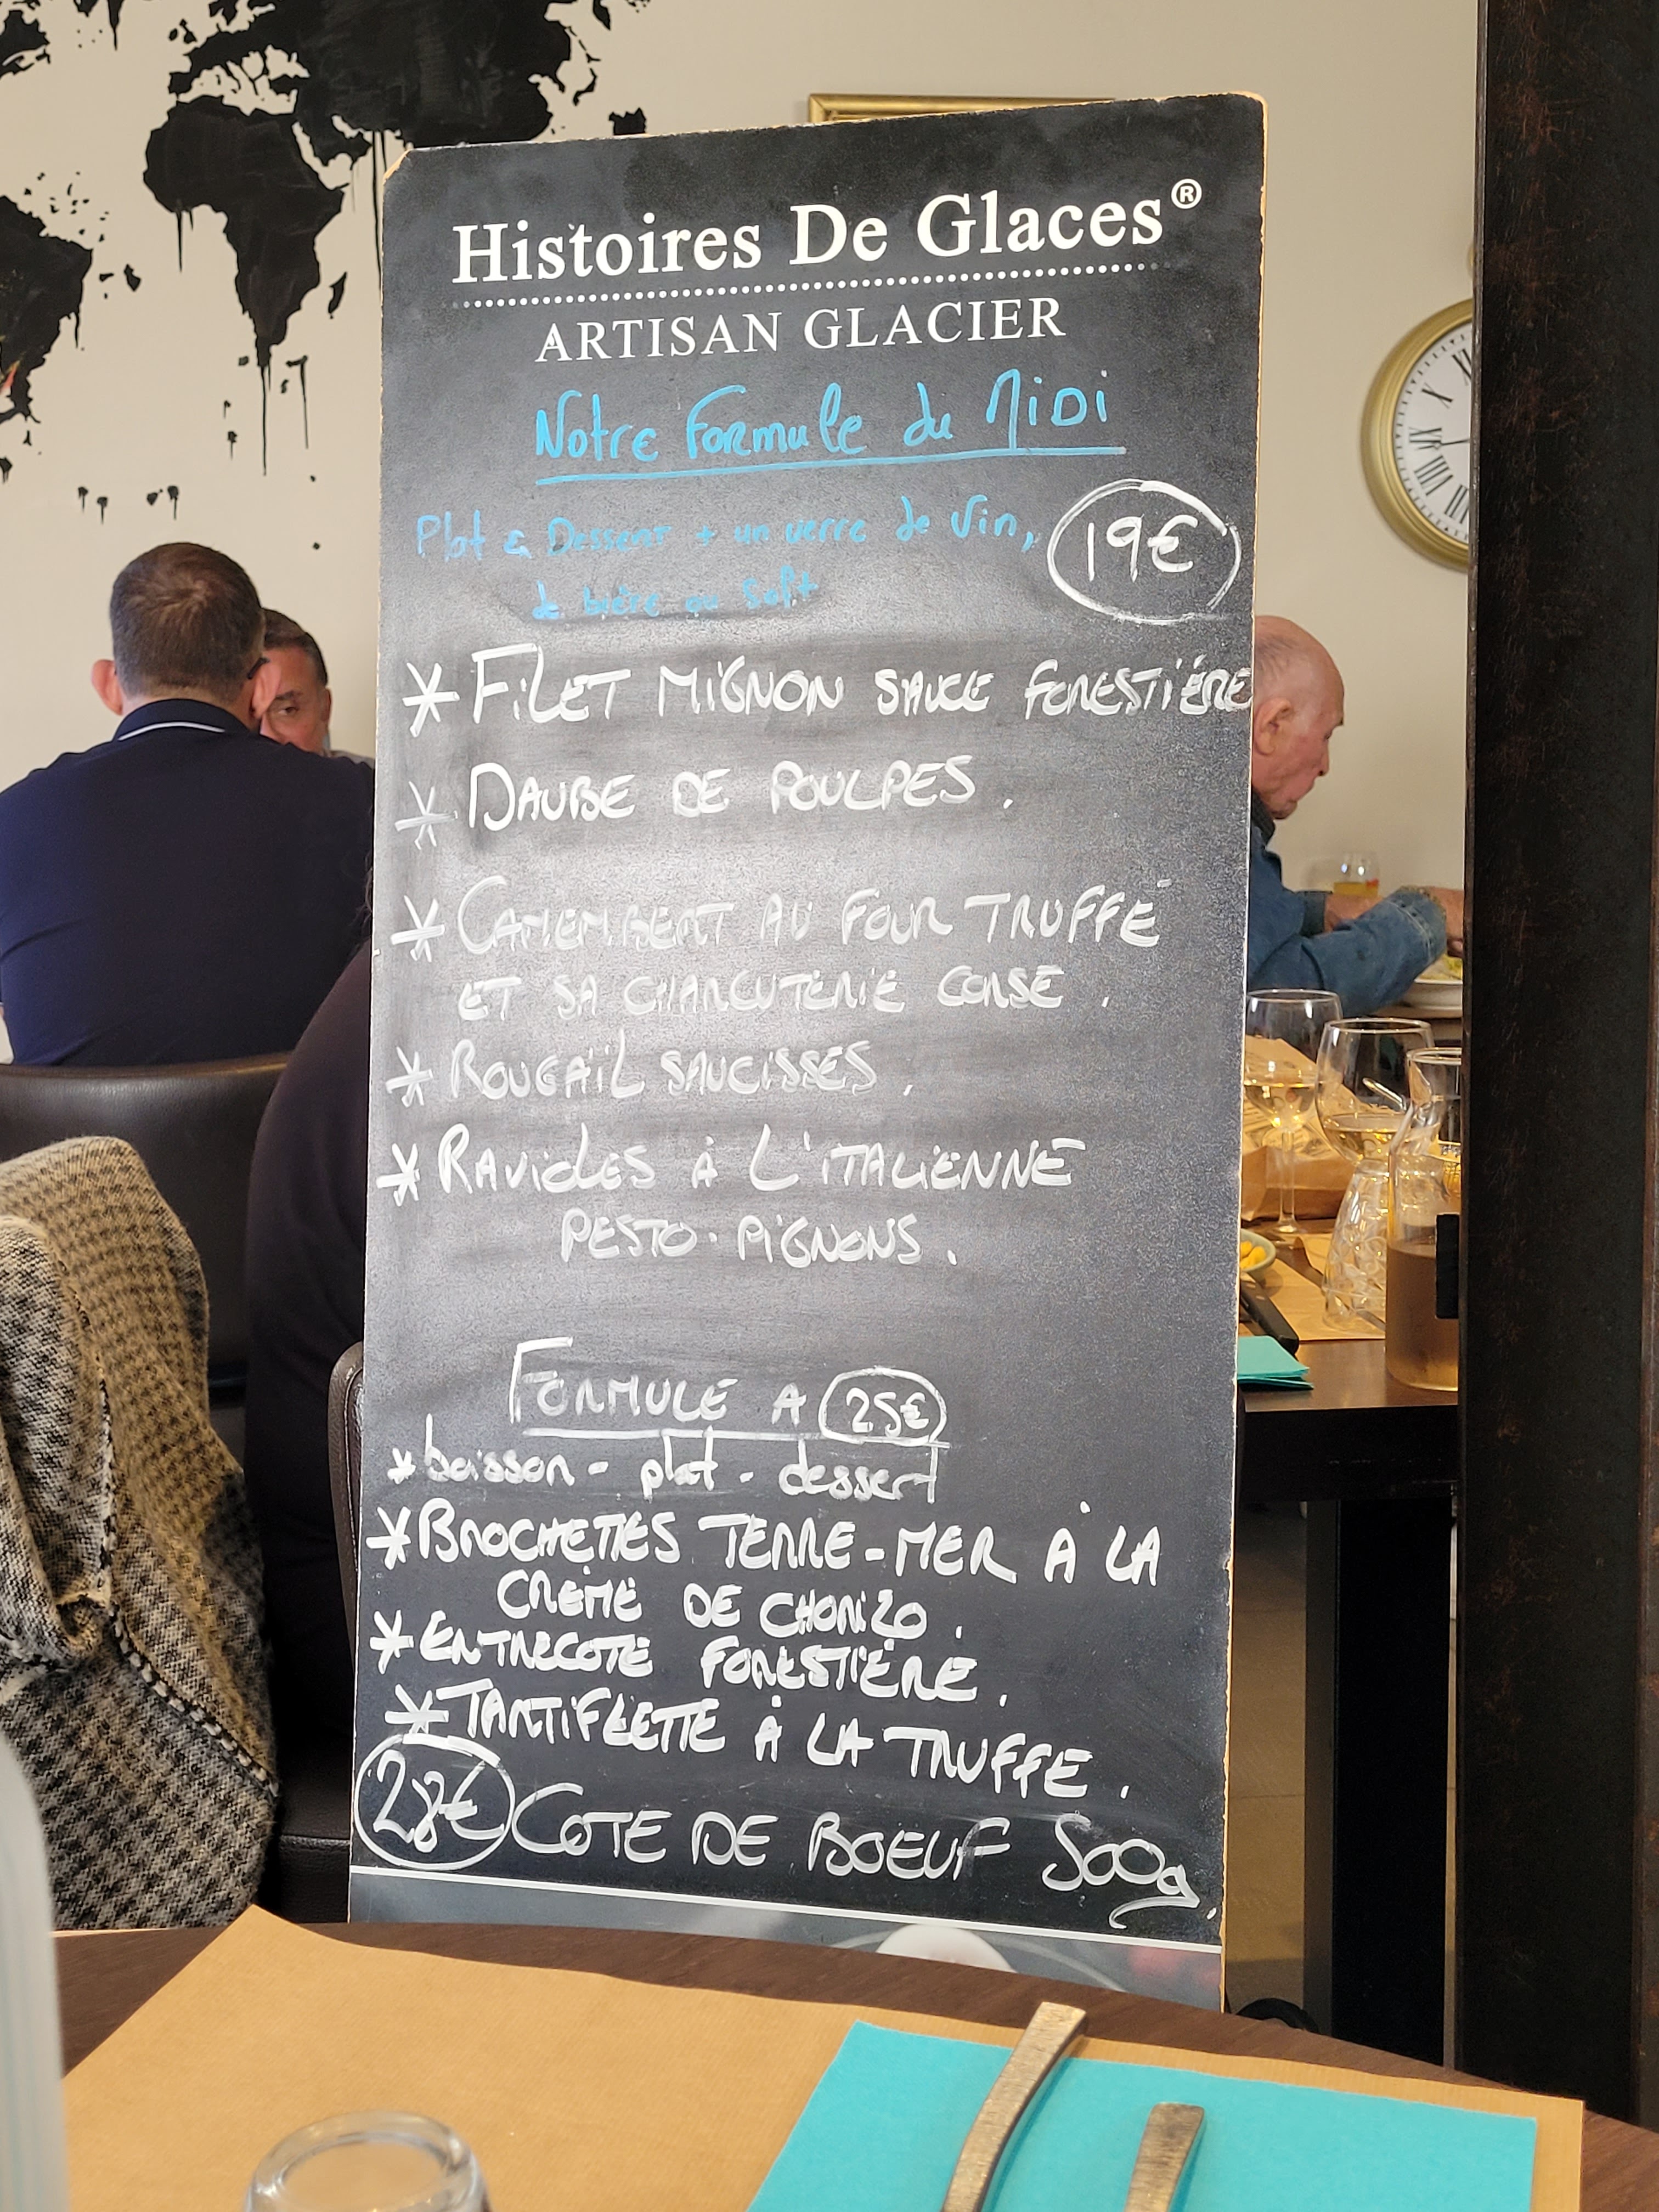 Histoires De Glaces®
ARTISAN GLACIER
Notre Formule du Midi
Plat & Dessert + un verre de Vin,
de bière ou Soft
19€
* FILET MIGNON SAUCE FORESTIÈRE
* DAUBE DE POULPES.
* CAMEMBERT AU FOUR TRUFFÉ
ET SA CHARCUTERIE CORSE.
* ROUGAIL SAUCISSES.
* RAVIOLES À L'ITALIENNE
PESTO. PIGNONS.
FORMULE A 25€
* boisson - plat - dessert
* BROCHETTES TERRE-MER À LA
CRÈME DE CHORIZO.
* ENTRECOTE FORESTIÈRE.
* TARTIFLETTE À LA TRUFFE.
28€ COTE DE BOEUF 500g.
X